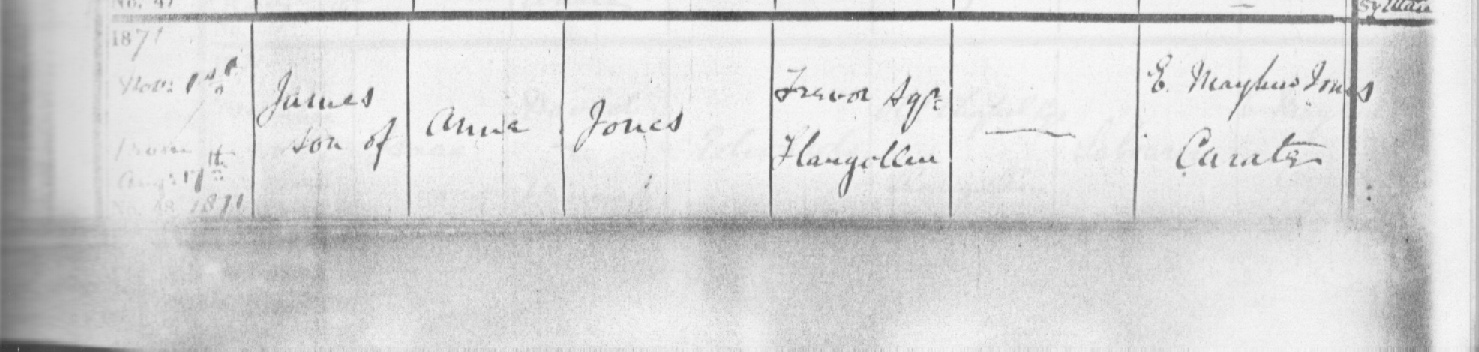 No. 47
1871
Nov: 1st
James
son of
Anne
Jones
Trevor Ago:
Llangollen
—
E. Mayhew Jones
Curate
Born
Aug: 17th
No. 48 1871